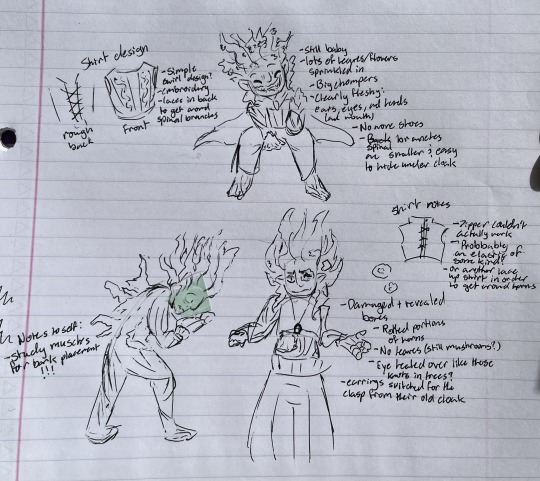 Shirt design
-Simple
swirl design?
-embroidery
-laces in back
to get around
spinal branches
rough
back
Front
-Still baby
-lots of leaves/flowers
sprinkled in
-Big chompers
-Clearly fleshy:
Ears, eyes, and hands
(and mouth)
-No more shoes
-Back branches
spinal
are smaller & easy
to hide under cloak
Shirt notes
-Zipper couldn't
actually work
-Probbably
an elastic of
some kind?
-or another lace
up shirt in order
to get around horns
Notes to self:
-Study muscles
for bark placement
!!!
-Damaged + revealed
bones
-Rotted portions
of horns
-No leaves (still mushrooms?)
-Eye healed over like those
knots in trees?
-earrings switched for the
clasp from their old cloak